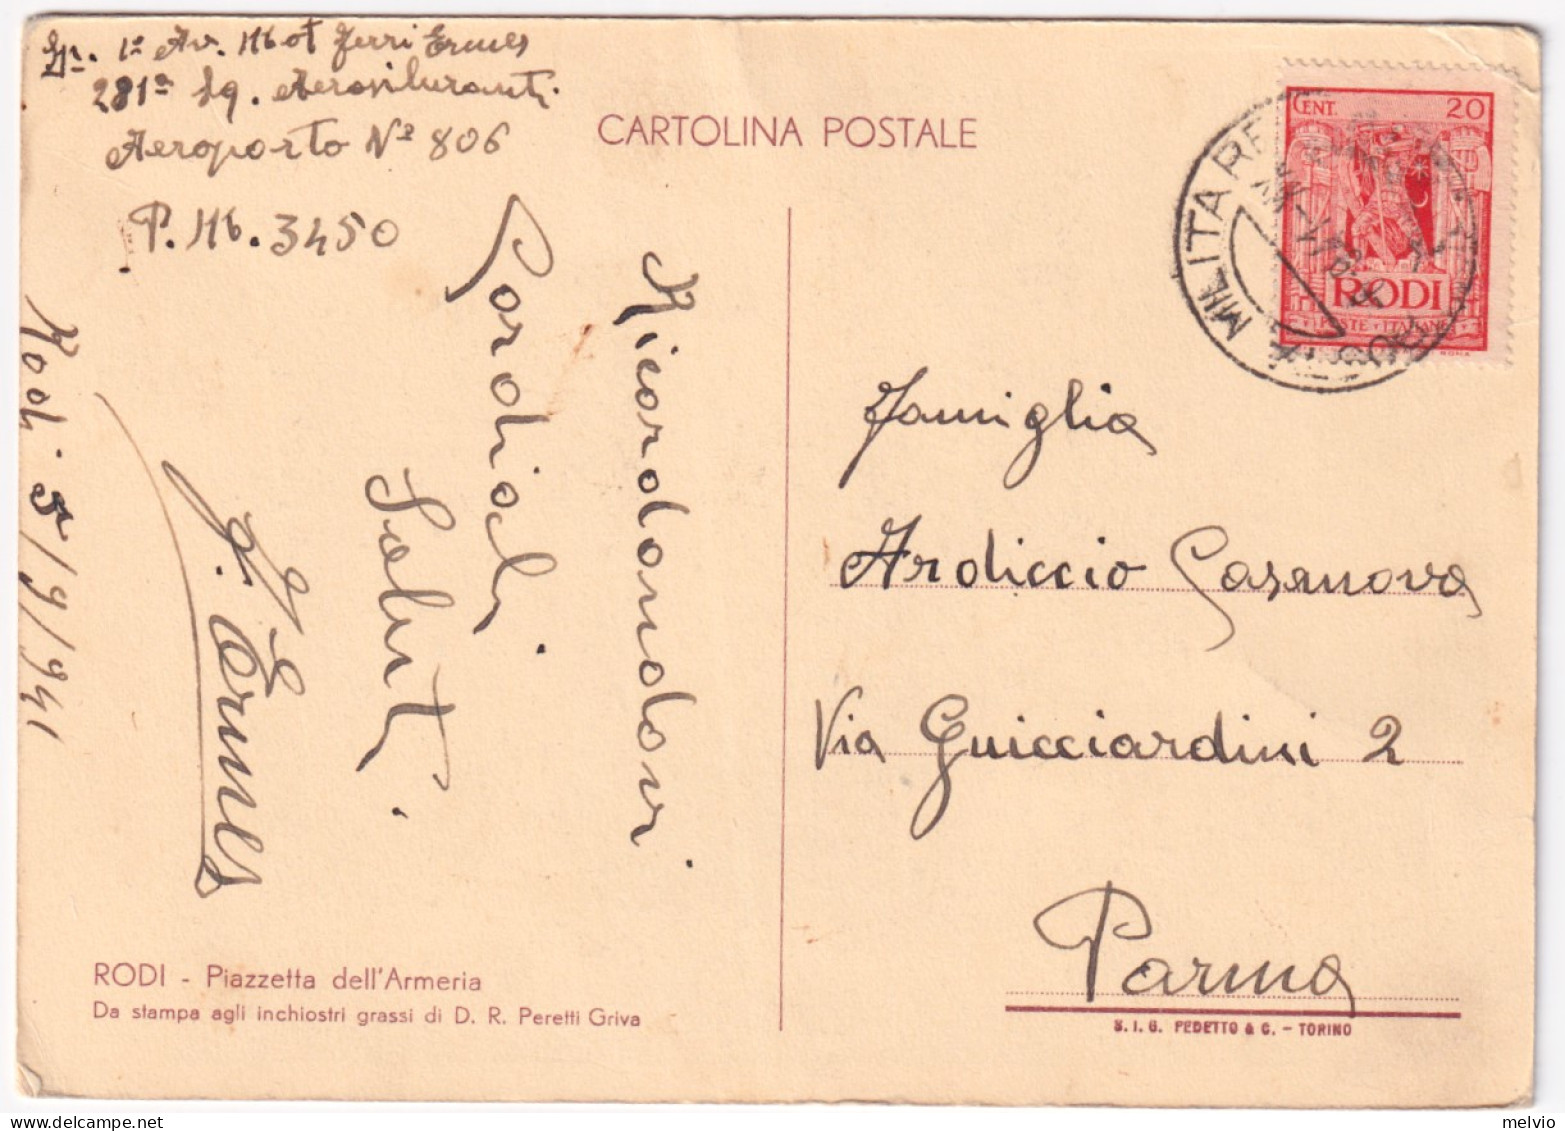 1º Av. Mot Ferri Ermes
281ª Sq. Aerosiluranti
Aeroporto Nº 806
P.M. 3450
CARTOLINA POSTALE
CENT. 20
RODI
POSTE ITALIANE
MILITARE
Rodi 5/9/941
Ricordandovi
Cordiali
Saluti.
F. Ermes
Famiglia
Ardiccio Casanova
Via Guicciardini 2
Parma
RODI - Piazzetta dell'Armeria
Da stampa agli inchiostri grassi di D. R. Peretti Griva
S. I. G. PEDETTO & C. - TORINO
melvio